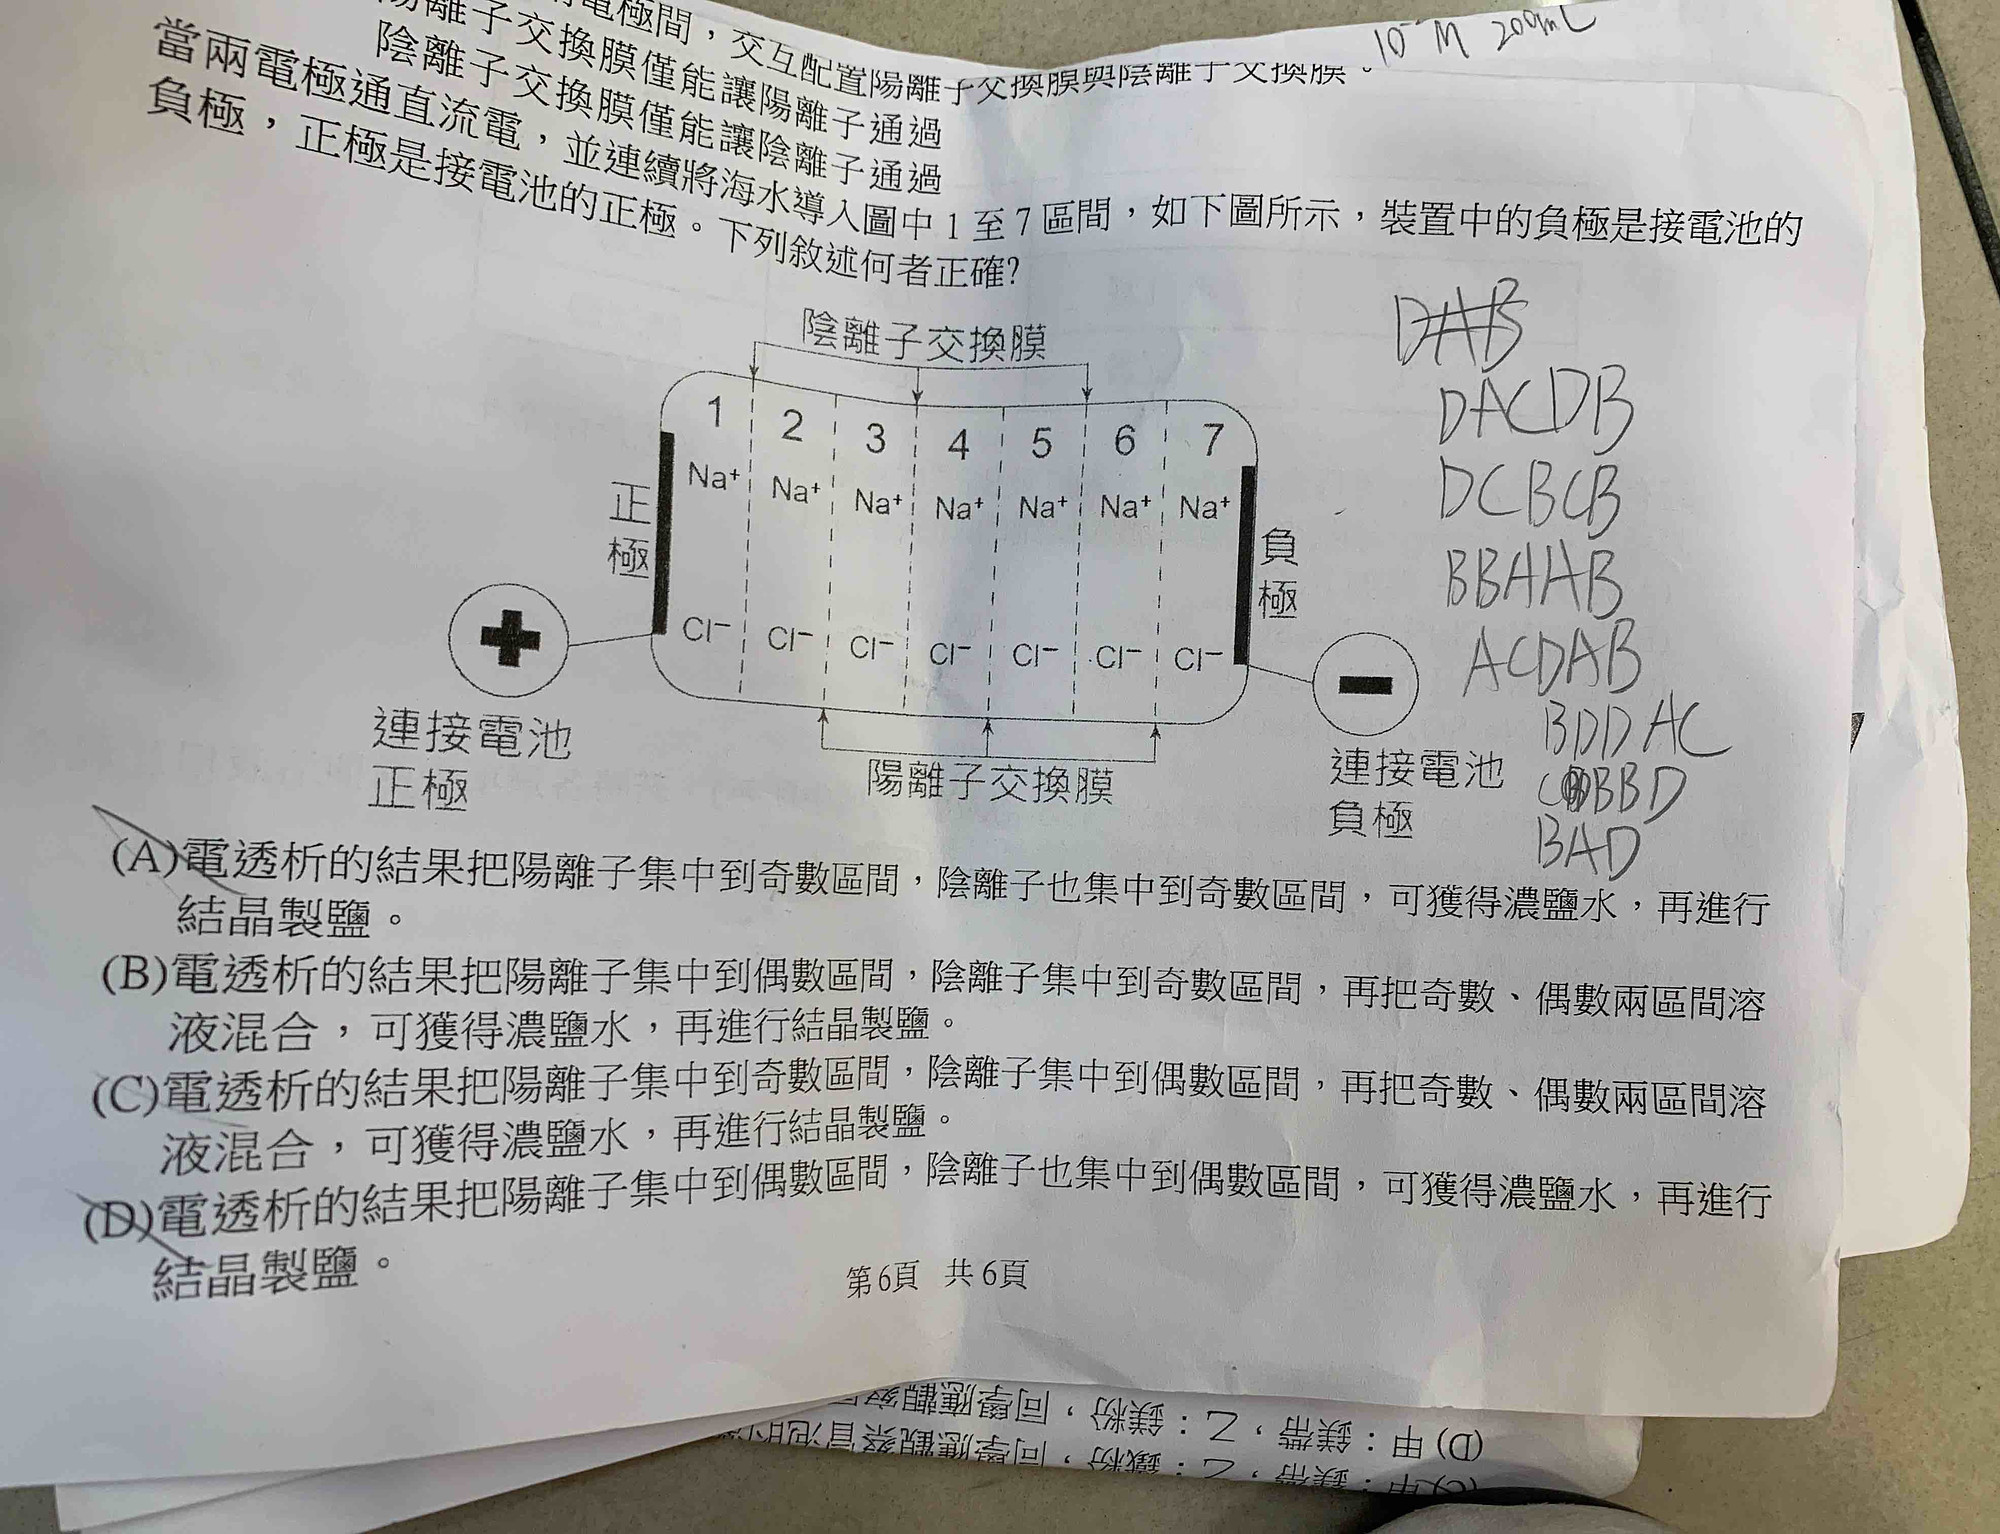 10⁻ M 200mL
電極間，交互配置陽離子交換膜與陰離子交換膜。
離子交換膜僅能讓陽離子通過
陰離子交換膜僅能讓陰離子通過
當兩電極通直流電，並連續將海水導入圖中1至7區間，如下圖所示，裝置中的負極是接電池的
負極，正極是接電池的正極。下列敘述何者正確?
陰離子交換膜
1 2 3 4 5 6 7
Na⁺ Na⁺ Na⁺ Na⁺ Na⁺ Na⁺ Na⁺
正極
負極
Cl⁻ Cl⁻ Cl⁻ Cl⁻ Cl⁻ Cl⁻ Cl⁻
+
−
連接電池
正極
陽離子交換膜
連接電池
負極
DAB
DACDB
DCBCB
BBAAB
ACDAB
BDDAC
C BBD
BAD
(A)電透析的結果把陽離子集中到奇數區間，陰離子也集中到奇數區間，可獲得濃鹽水，再進行
結晶製鹽。
(B)電透析的結果把陽離子集中到偶數區間，陰離子集中到奇數區間，再把奇數、偶數兩區間溶
液混合，可獲得濃鹽水，再進行結晶製鹽。
(C)電透析的結果把陽離子集中到奇數區間，陰離子集中到偶數區間，再把奇數、偶數兩區間溶
液混合，可獲得濃鹽水，再進行結晶製鹽。
(D)電透析的結果把陽離子集中到偶數區間，陰離子也集中到偶數區間，可獲得濃鹽水，再進行
結晶製鹽。
第6頁 共6頁
(D)甲：鎂帶，乙：鎂粉，同學應觀察
(C)甲：鎂帶，乙：鐵粉，同學應觀察冒泡的